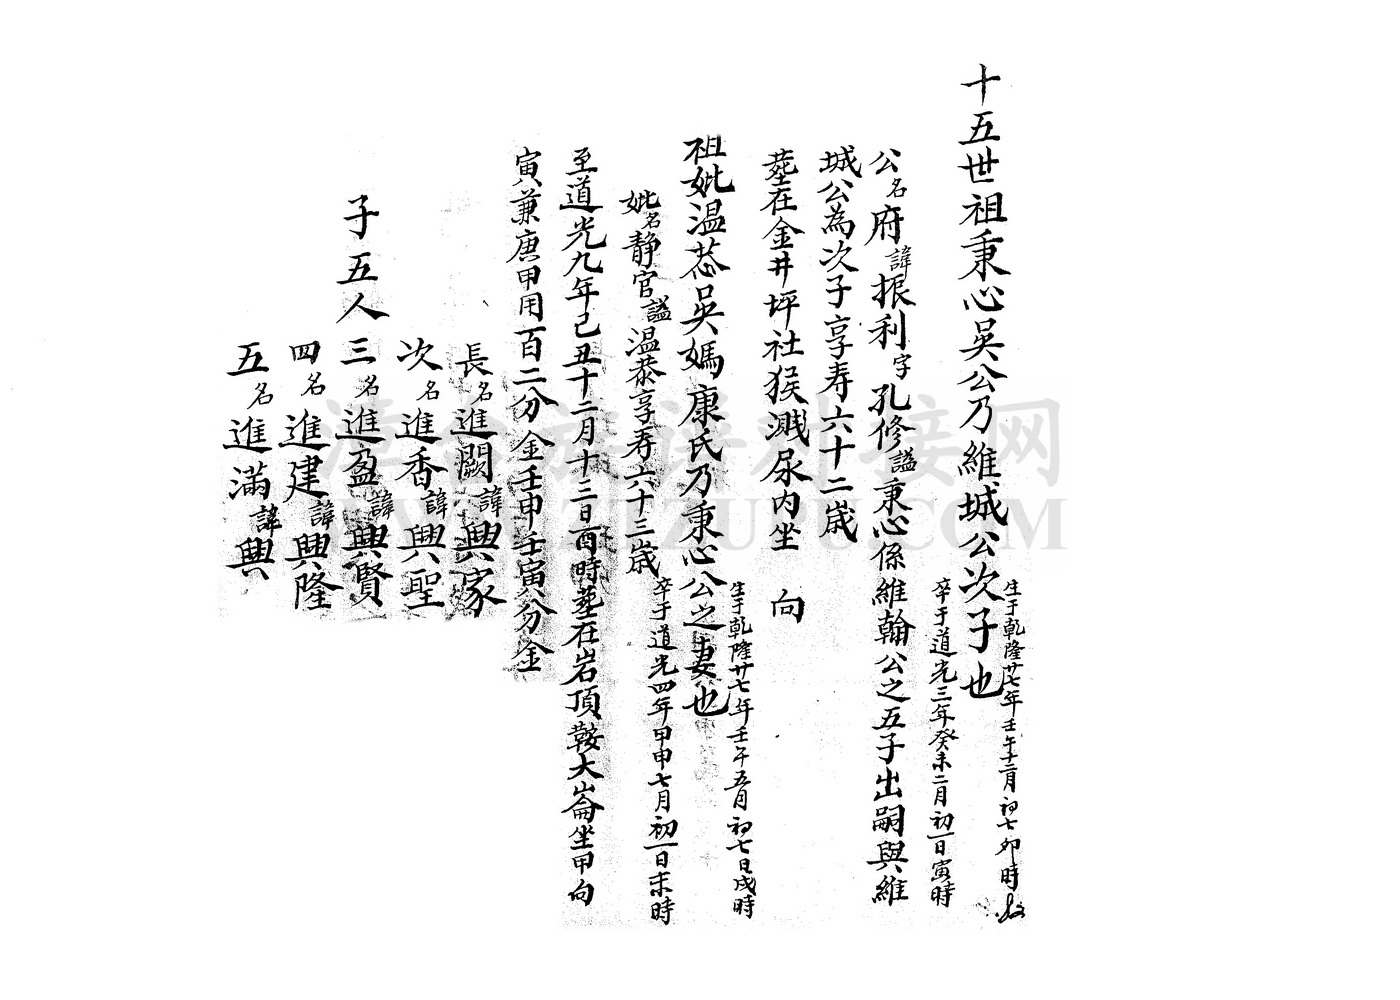 十五世祖秉心吳公乃維城公次子也
生于乾隆廿七年壬午十二月初七卯時
卒于道光三年癸未二月初一日寅時
公名府諱振利字孔修謚秉心係維翰公之五子出嗣與維
城公為次子享寿六十二歳
塟在金井坪社猴溅尿内坐 向
祖妣温恭吳媽康氏乃秉心公之妻也
生于乾隆廿七年壬午五月初七日戌時
卒于道光四年甲申七月初一日未時
妣名静官謚温恭享寿六十三歳
至道光九年己丑十二月十三日酉時塟在岩頂鞍大崙坐甲向
寅兼庚甲用百二分金壬申壬寅分金
子五人
長名進闕諱興家
次名進香諱興聖
三名進盈諱興賢
四名進建諱興隆
五名進满諱興
漳台族谱对接网
WWW.ZTZUPU.COM